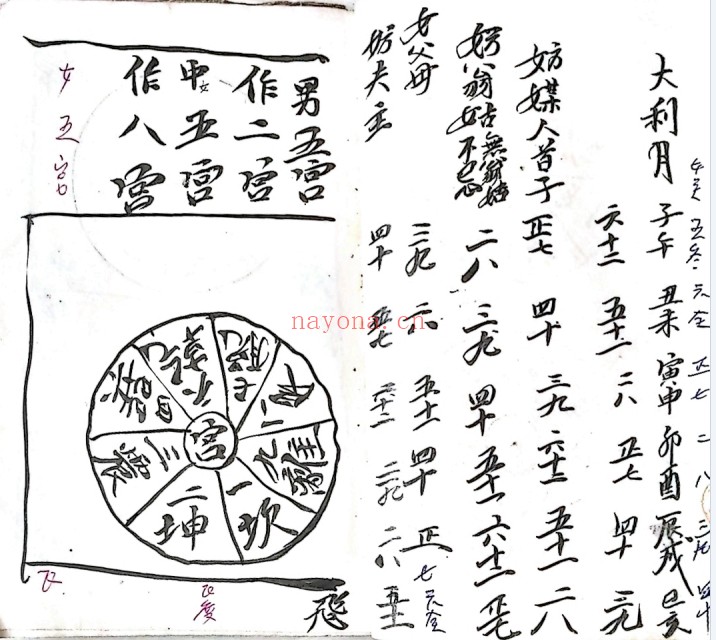 正七 二八 三九 四十
大利月 子午 丑未 寅申 卯酉 辰戌 巳亥
六十二 五十一 二八 正七 四十 三九
妨媒人首子 正七 四十 三九 六十二 五十一 二八
妨翁姑 無翁姑不忌 二八 三九 四十 五十一 六十二 正七
女父母 三九 二八 五十一 四十 正七
妨夫主 四十 正七 六十二 二八 五十一
男五宫
作二宫
中女五宫
作八宫
女五宫
宫
一坎
二坤
三震
四巽
九離
飛
nayona.cn